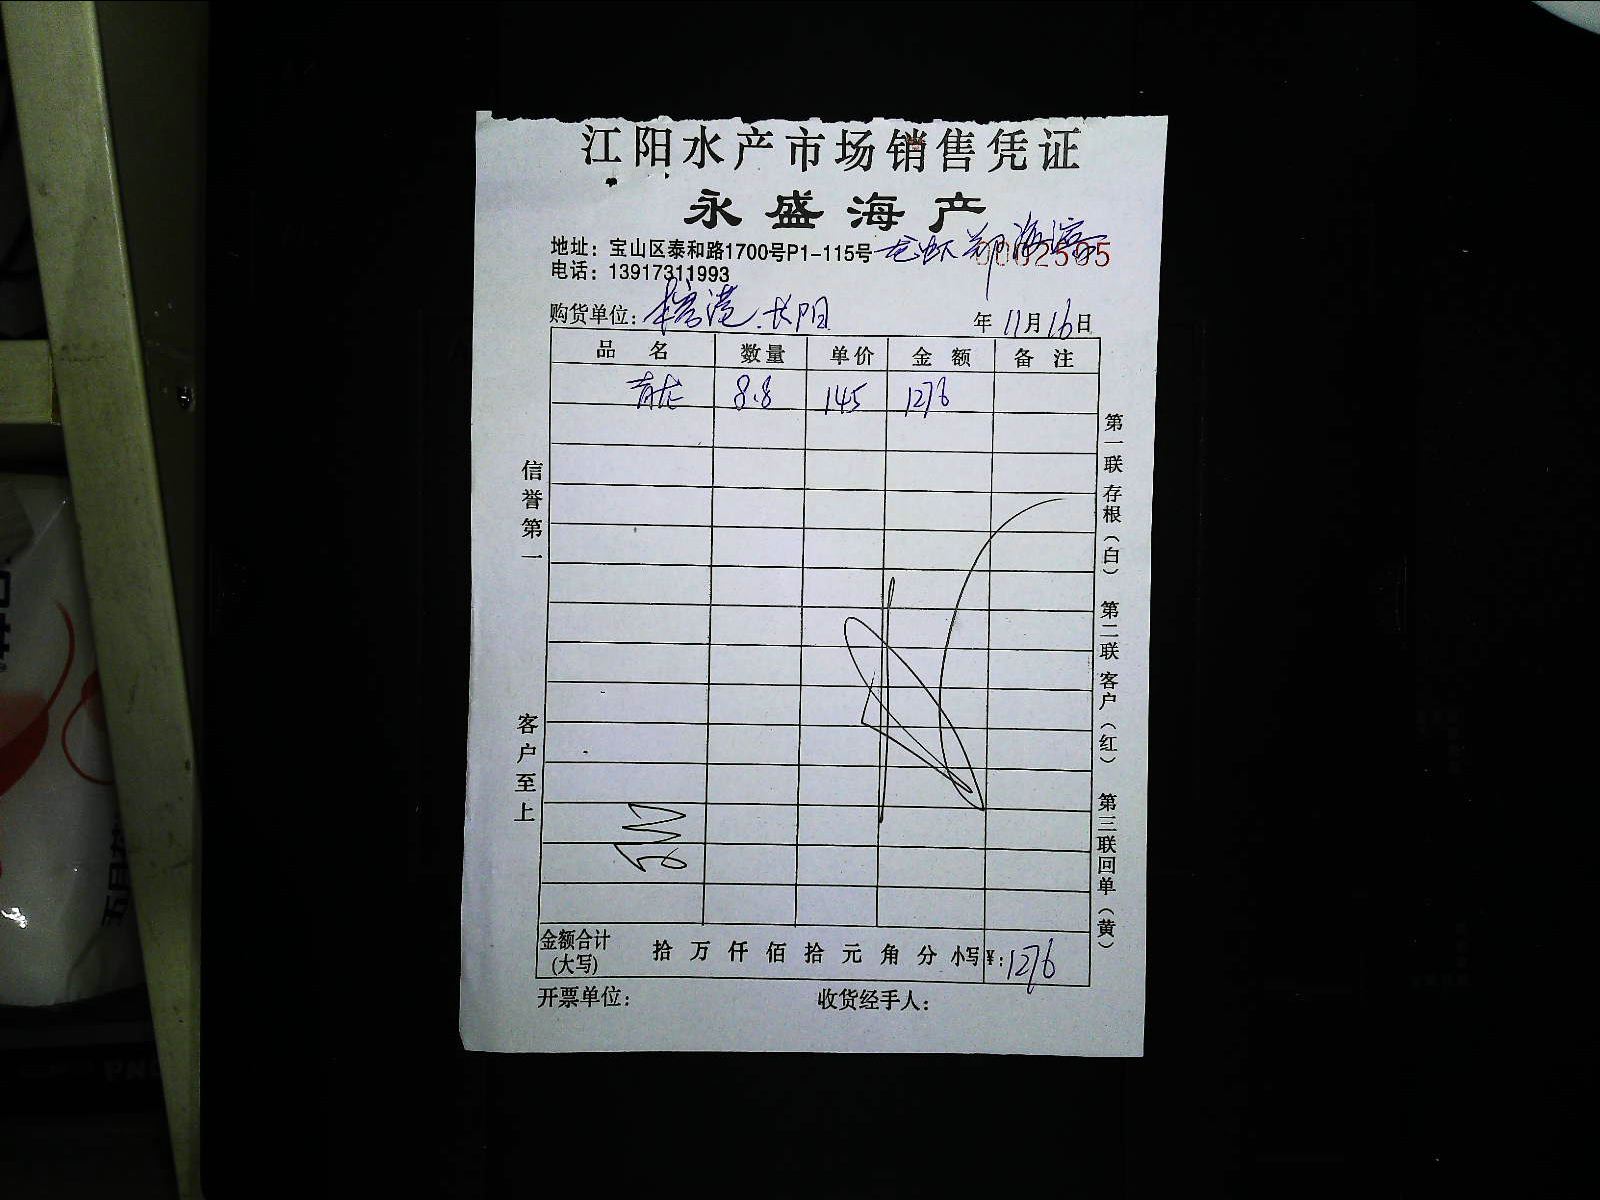 江阳水产市场销售凭证
永盛海产
地址：宝山区泰和路1700号P1-115号
0002505
电话：13917311993
购货单位： 长阳
年 11月16日
品 名 数量 单价 金 额 备 注
青龙 8.8 145 1276
信誉第一
客户至上
第一联 存根（白） 第二联 客户（红） 第三联回单（黄）
金额合计(大写) 拾 万 仟 佰 拾 元 角 分 小写¥：1276
开票单位： 收货经手人：